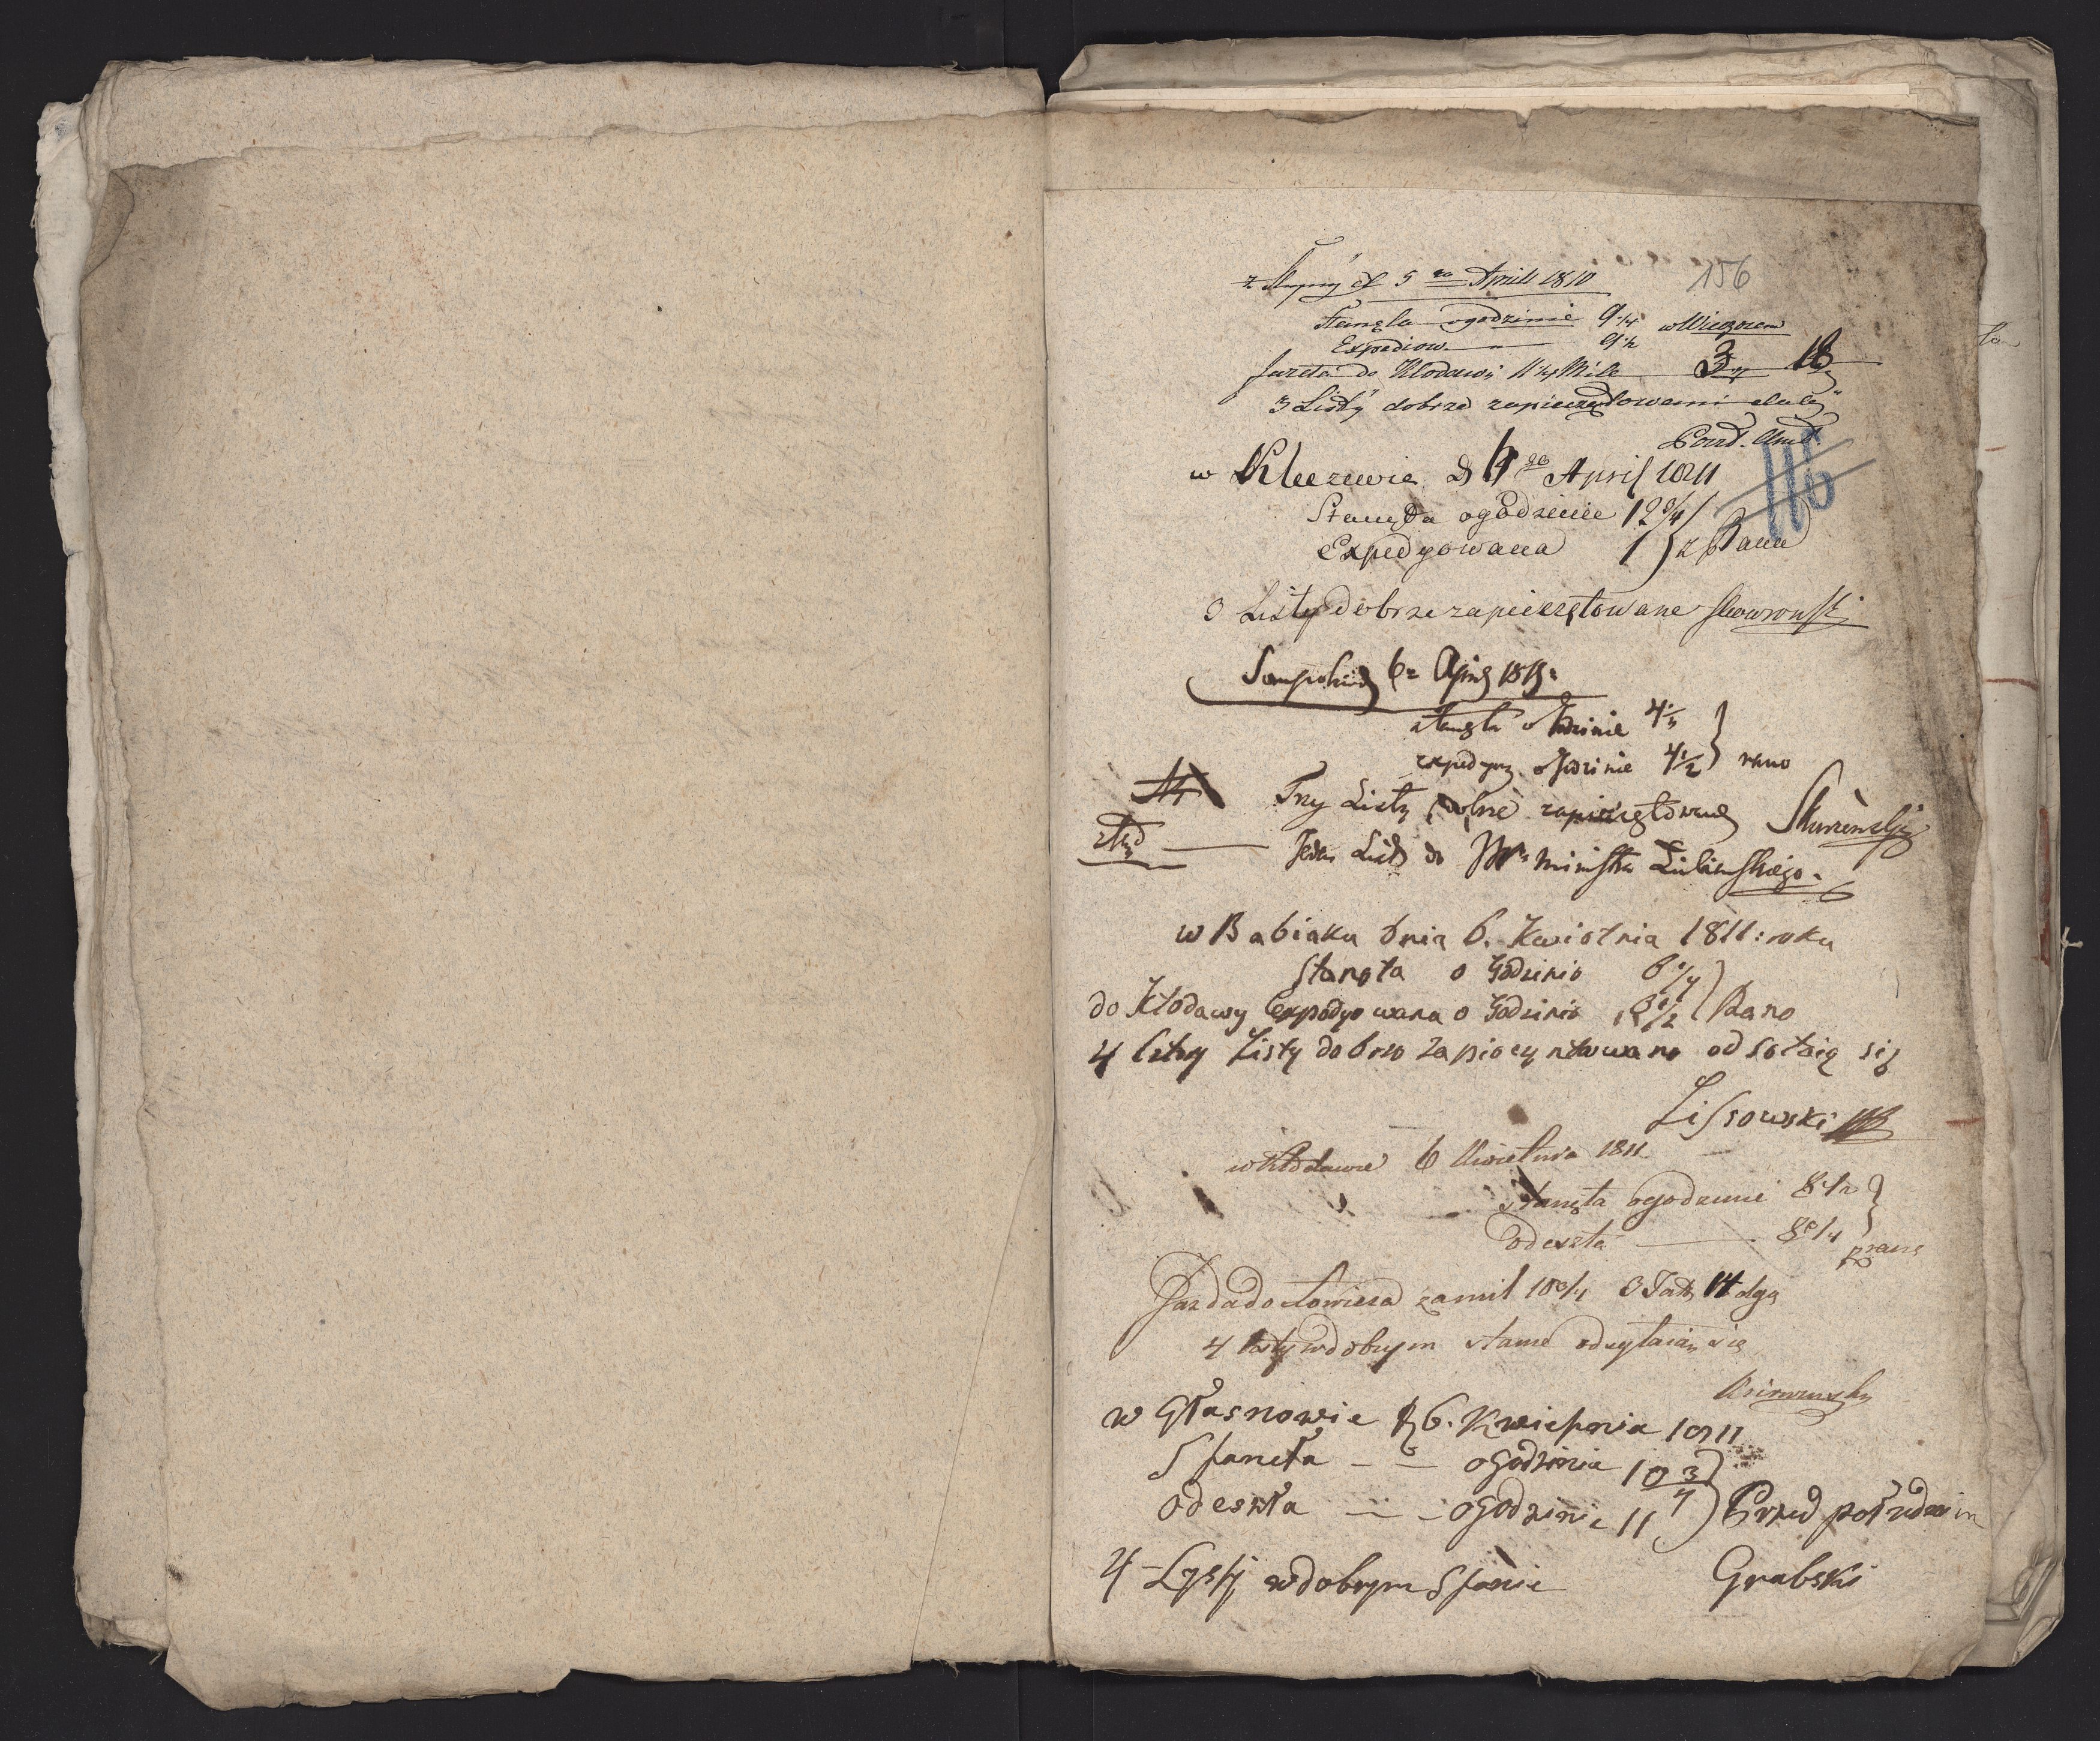 z Słupcy d 5 go April 1810
156
Stanęła ogodzinie 9 1/4 w Wieczorem
Expediow. — 9 1/2
Jazda do Kłodawi 11 1/4 Mile 3 18
3 Listÿ dobrze zapieczętowami
w Kleczewie d 6 go April 1811
116
Stanęła ogodzinie 12 3/4
Expedyowana 1 } z Rana
3 Listy dobrze zapieczętowane Skowroński
Sompolnie 6 April 1811
stanęła o Godzinie 4 1/4
expedyow. o Godzinie 4 1/2 } rano
Trzy Listy dobrze zapieczętowane
ztąd — Jeden List do JW Ministra Łubieńskiego.
w Babiaku dnia 6. Kwietnia 1811: roku
Stanęła o Godzinie 6 1/4
do Kłodawy Expedyowana o Godzinie 6 1/2 } Rano
4 Cztery Listy dobrze zapieczętowane odsełaią się
Lissowski
w Kłodawie 6 Kwietnia 1811
stanęła ogodzinie 8 1/2
odeszła — 8 3/4 } z rana
Jazda do Łowicza zamil 10 3/4 3 Tal 14 dgr
4 Listy w dobrym stanie odsyłaią się
w Głasnowie d 6. Kwietnia 1811
Staneła — — ogodzinie 10 3/4
odeszła — — ogodzinie 11 } Przed południem
4 Lysty wdobrym Stanie Grabski